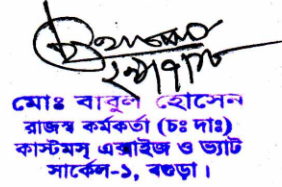 মোঃ বাবুল হোসেন
রাজস্ব কর্মকর্তা (চঃ দাঃ)
কাস্টমস্ এক্সাইজ ও ভ্যাট
সার্কেল-১, বগুড়া।